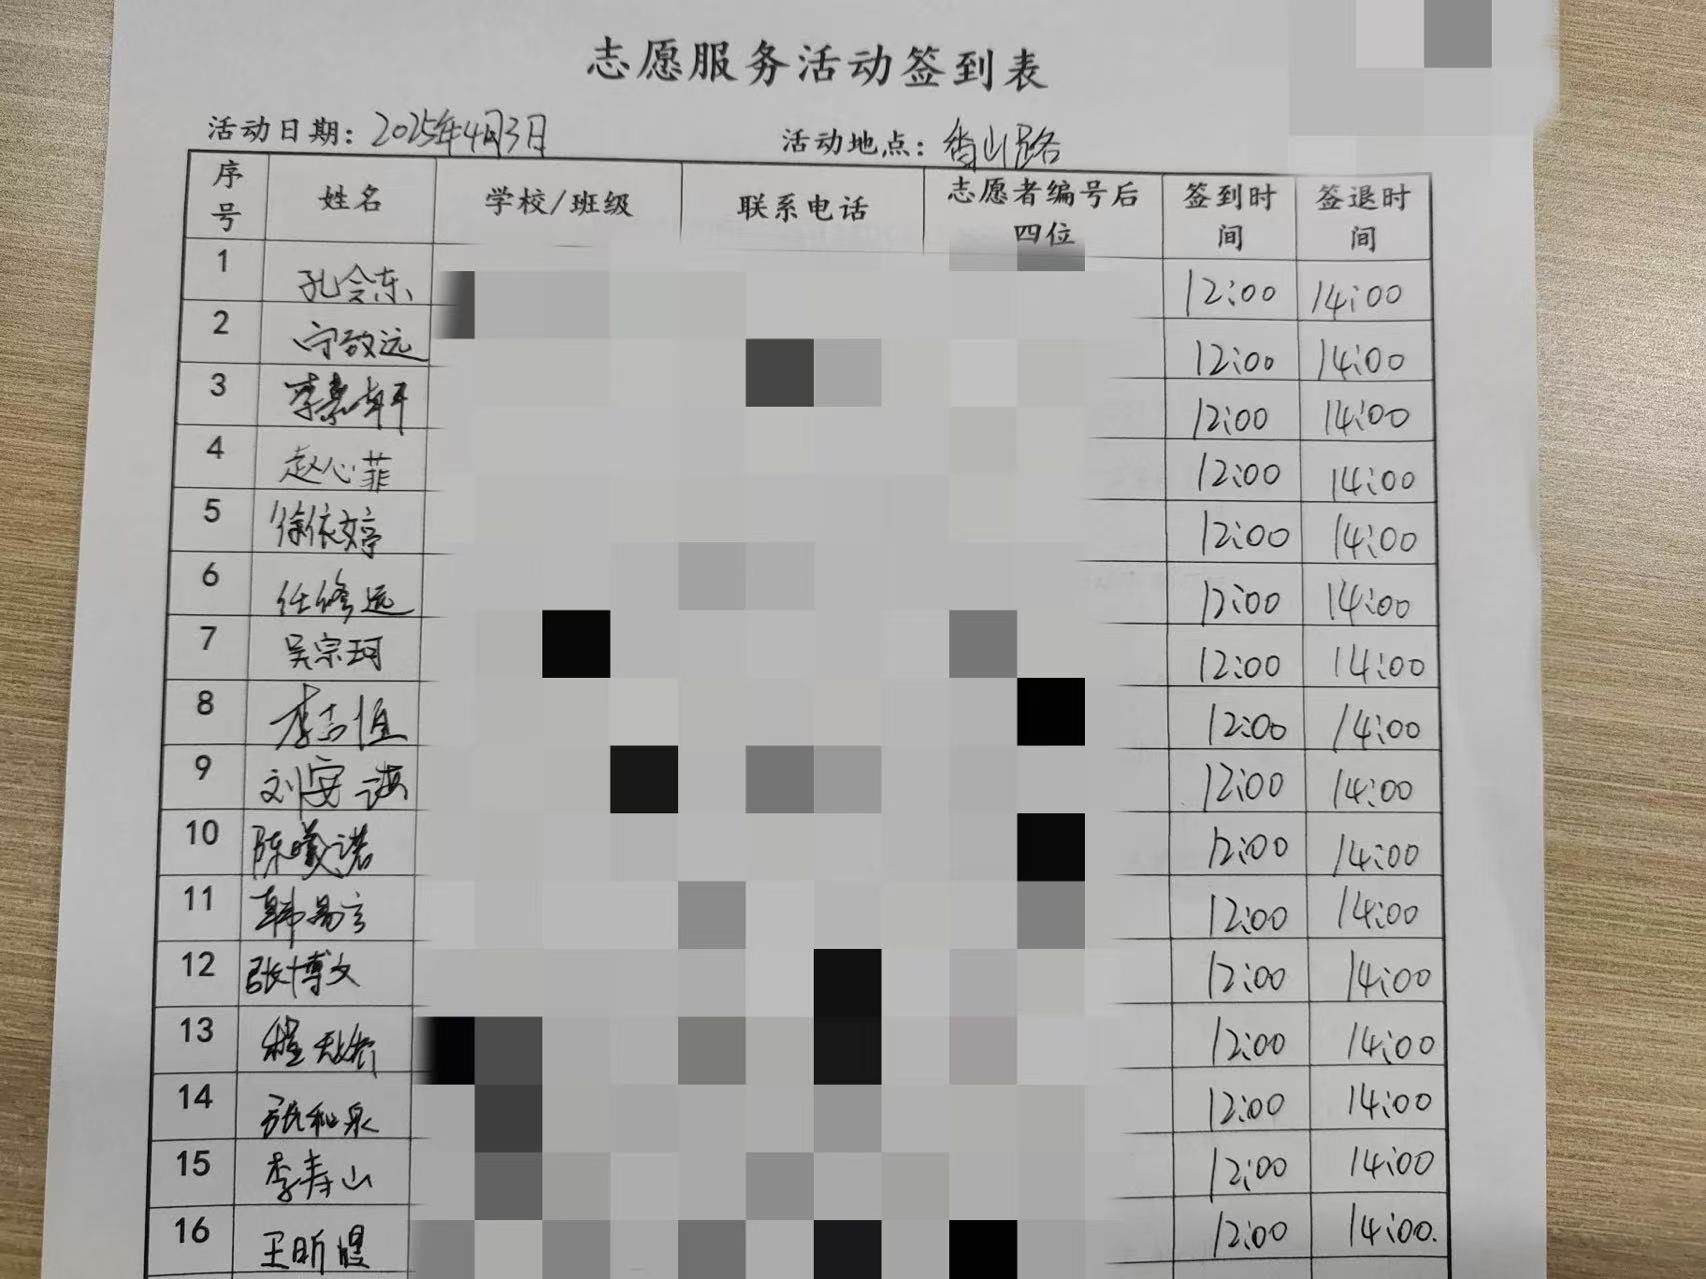 志愿服务活动签到表
活动日期：2025年4月3日 活动地点：香山路
序号 姓名 学校/班级 联系电话 志愿者编号后四位 签到时间 签退时间
1 孔令东 12:00 14:00
2 宁致远 12:00 14:00
3 李景轩 12:00 14:00
4 赵心菲 12:00 14:00
5 徐依婷 12:00 14:00
6 任修远 12:00 14:00
7 吴宗珂 12:00 14:00
8 李志恒 12:00 14:00
9 刘安海 12:00 14:00
10 陈曦诺 12:00 14:00
11 韩易言 12:00 14:00
12 张博文 12:00 14:00
13 程 12:00 14:00
14 张和泉 12:00 14:00
15 李寿山 12:00 14:00
16 王昕煜 12:00 14:00.